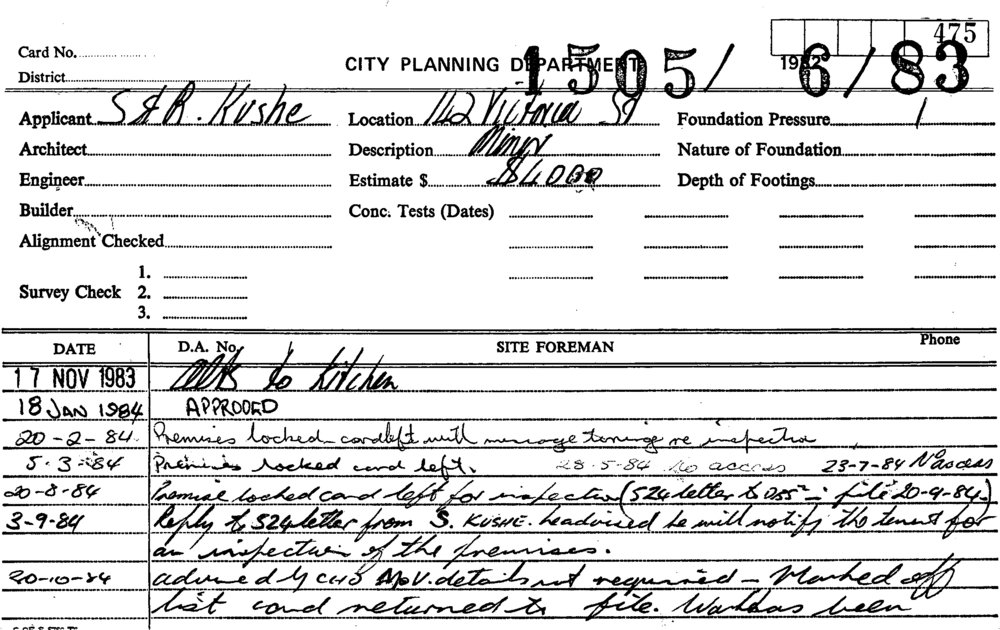 475
Card No.
CITY PLANNING DEPARTMENT 1982
1505/6/83
District
Applicant S & R. Kushe Location 142 Victoria St Foundation Pressure 1
Architect Description Minor Nature of Foundation
Engineer Estimate $ $4000 Depth of Footings
Builder Conc. Tests (Dates)
Alignment Checked
1.
Survey Check 2.
3.
DATE D.A. No. SITE FOREMAN Phone
17 NOV 1983 Alts to Kitchen
18 JAN 1984 APPROOED
20-2-84 Premises locked card left with message to ring re inspection
5.3-84 Premises locked card left. 28-5-84 No access 23-7-84 No access
20-8-84 Premise locked card left for inspection (524 letter to file 20-9-84.)
3-9-84 Reply to 524 letter from S. KUSHE. he advised he will notify the tenant for
an inspection of the premises.
20-10-84 advised by details not required - Marked off
list card returned to file. Work has been